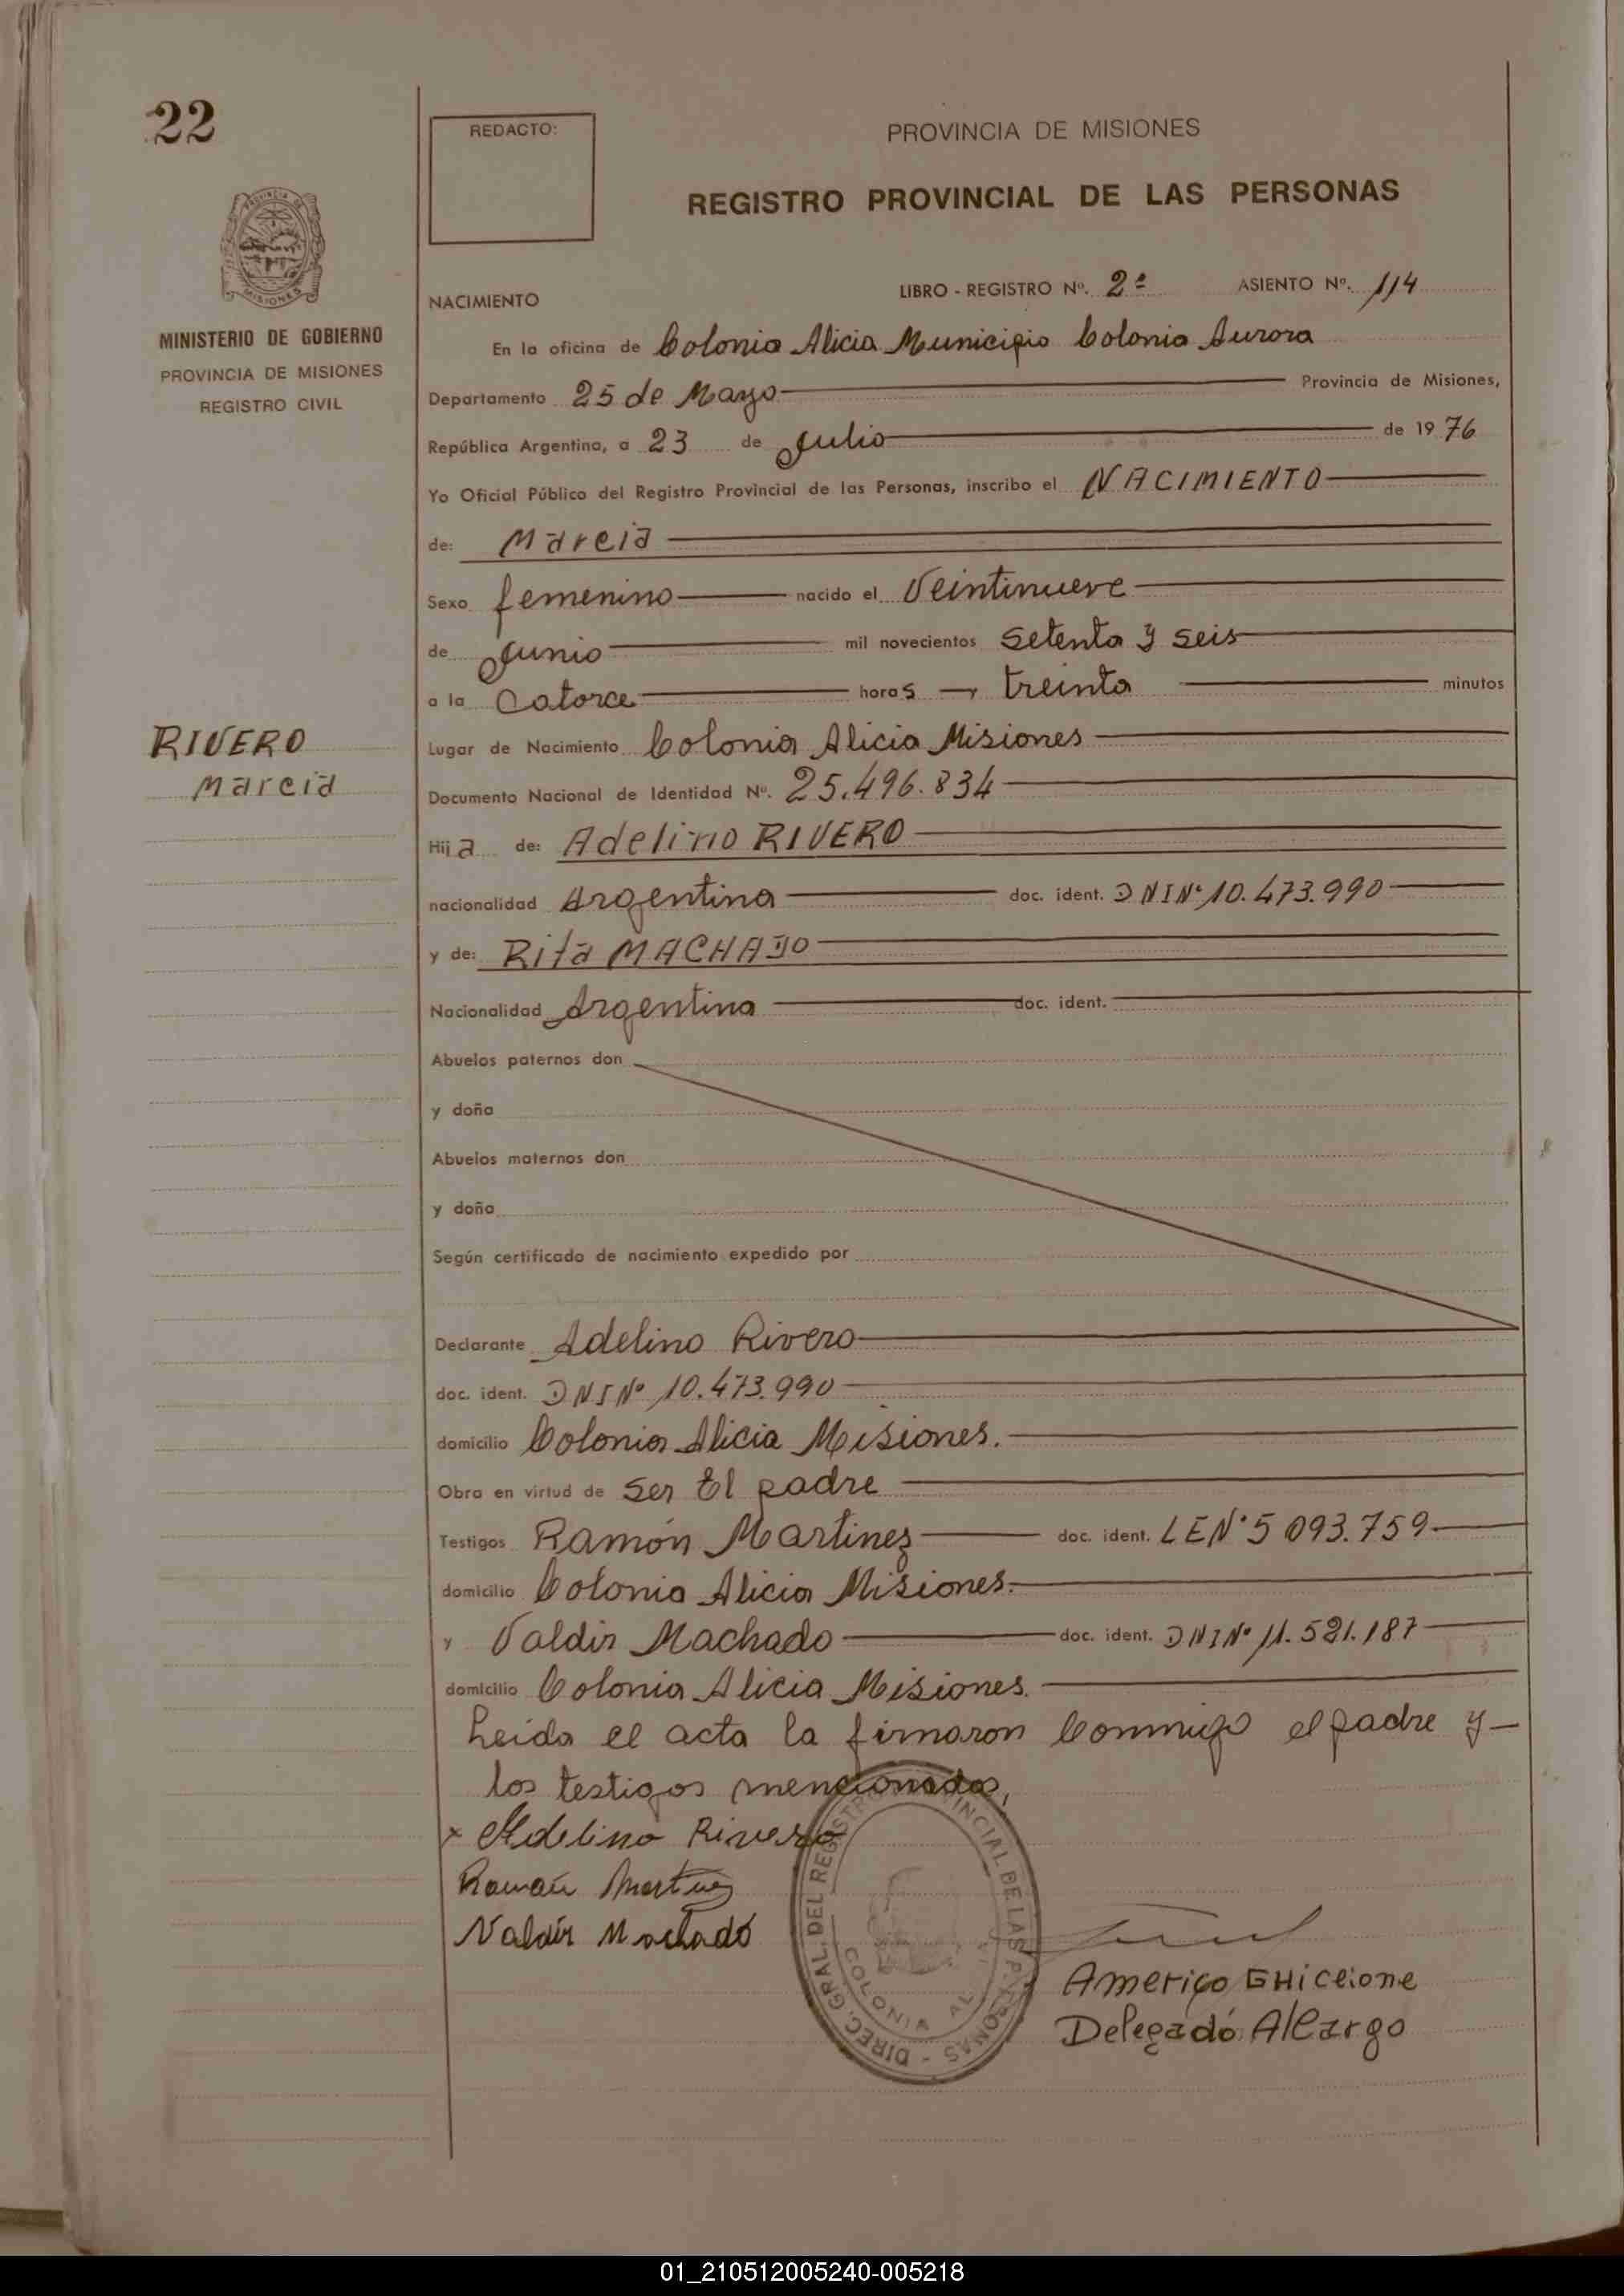 22
REDACTO:
PROVINCIA DE MISIONES
REGISTRO PROVINCIAL DE LAS PERSONAS
MISIONES
MINISTERIO DE GOBIERNO
PROVINCIA DE MISIONES
REGISTRO CIVIL
LIBRO - REGISTRO Nº. 2º ASIENTO Nº. 114
NACIMIENTO
En la oficina de Colonia Alicia Municipio Colonia Aurora
Departamento 25 de Mayo Provincia de Misiones,
República Argentina, a 23 de Julio de 1976
Yo Oficial Público del Registro Provincial de las Personas, inscribo el NACIMIENTO
de: Marcia
Sexo femenino nacido el Veintinueve
de Junio mil novecientos setenta y seis
a la Catorce horas treinta minutos
RIVERO
Marcia
Lugar de Nacimiento Colonia Alicia Misiones
Documento Nacional de Identidad Nº. 25.496.834
Hija de: Adelino RIVERO
nacionalidad Argentina doc. ident. DNI Nº 10.473.990
y de: Rita MACHADO
Nacionalidad Argentina doc. ident.
Abuelos paternos don
y doña
Abuelos maternos don
y doña
Según certificado de nacimiento expedido por
Declarante Adelino Rivero
doc. ident. DNI Nº 10.473.990
domicilio Colonia Alicia Misiones.
Obra en virtud de ser El padre
Testigos Ramón Martinez doc. ident. LE Nº 5 093.759
domicilio Colonia Alicia Misiones.
y Valdir Machado doc. ident. DNI Nº 11.521.187
domicilio Colonia Alicia Misiones.
Leida el acta la firmaron conmigo el padre y
los testigos mencionados,
x Adelino Rivero
Ramón Martinez
Valdir Machado
DIREC. GRAL. DEL REGISTRO PROVINCIAL DE LAS PERSONAS -
COLONIA
Americo GHiccione
Delegado AlCargo
01_210512005240-005218